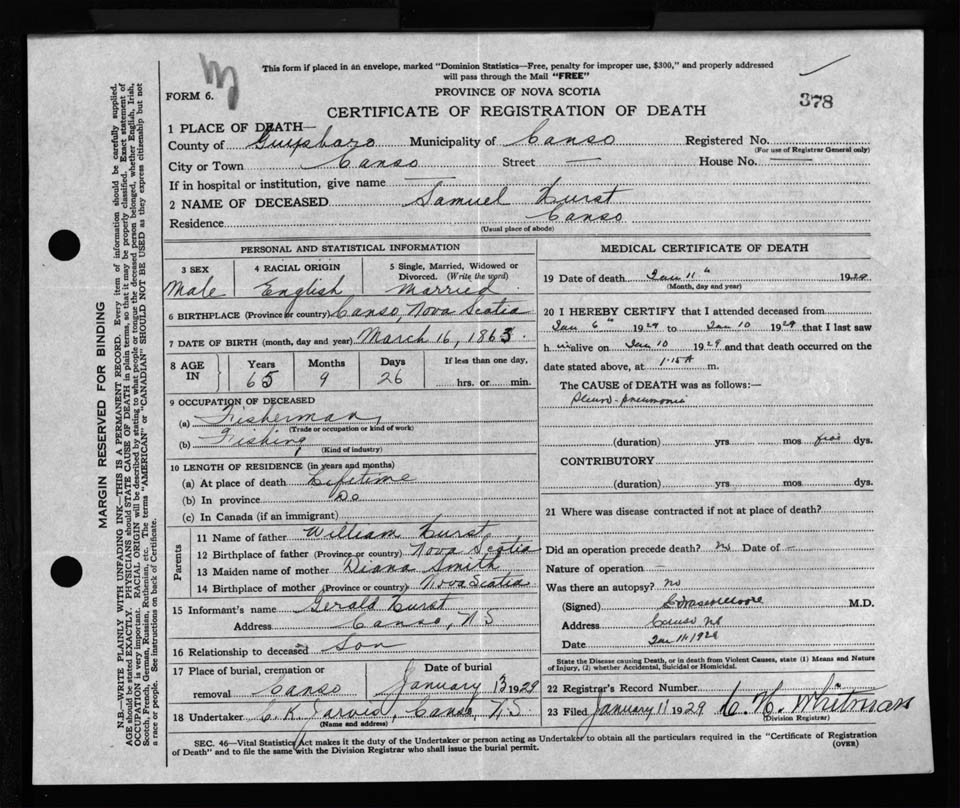 This form if placed in an envelope, marked "Dominion Statistics—Free, penalty for improper use, $300," and properly addressed
will pass through the Mail "FREE"
FORM 6.
PROVINCE OF NOVA SCOTIA
378
CERTIFICATE OF REGISTRATION OF DEATH
1 PLACE OF DEATH—
County of Guysboro Municipality of Canso Registered No.
(For use of Registrar General only)
City or Town Canso Street — House No. —
If in hospital or institution, give name —
2 NAME OF DECEASED Samuel Hurst
Residence Canso
(Usual place of abode)
PERSONAL AND STATISTICAL INFORMATION
3 SEX 4 RACIAL ORIGIN 5 Single, Married, Widowed or
Divorced. (Write the word)
Male English Married
6 BIRTHPLACE (Province or country) Canso, Nova Scotia
7 DATE OF BIRTH (month, day and year) March 16, 1863.
8 AGE IN Years Months Days If less than one day,
65 9 26 hrs. or min.
9 OCCUPATION OF DECEASED
(a) Fisherman,
(Trade or occupation or kind of work)
(b) Fishing
(Kind of industry)
10 LENGTH OF RESIDENCE (in years and months)
(a) At place of death Lifetime
(b) In province Do
(c) In Canada (if an immigrant)
Parents
11 Name of father William Hurst
12 Birthplace of father (Province or country) Nova Scotia
13 Maiden name of mother Diana Smith
14 Birthplace of mother (Province or country) Nova Scotia
15 Informant's name Gerald Hurst
Address Canso, N S
16 Relationship to deceased Son
17 Place of burial, cremation or Date of burial
removal Canso January 13 1929
18 Undertaker C. K. Jarvis, Canso, N S.
(Name and address)
MEDICAL CERTIFICATE OF DEATH
19 Date of death Jan 11" 1929
(Month, day and year)
20 I HEREBY CERTIFY that I attended deceased from
Jan 6" 1929 to Jan 10 1929 that I last saw
h im alive on Jan 10 1929 and that death occurred on the
date stated above, at 1.15 A m.
The CAUSE of DEATH was as follows:—
Pleuro-pneumonia
(duration) yrs mos five dys.
CONTRIBUTORY
(duration) yrs mos dys.
21 Where was disease contracted if not at place of death?
Did an operation precede death? No Date of —
Nature of operation —
Was there an autopsy? no
(Signed) M.D.
Address Canso NS
Date Jan 11 1929
State the Disease causing Death, or in death from Violent Causes, state (1) Means and Nature
of Injury, (2) whether Accidental, Suicidal or Homicidal.
22 Registrar's Record Number
23 Filed January 11 1929 C. H. Whitman
(Division Registrar)
SEC. 46—Vital Statistics Act makes it the duty of the Undertaker or person acting as Undertaker to obtain all the particulars required in the "Certificate of Registration
of Death" and to file the same with the Division Registrar who shall issue the burial permit. (OVER)
MARGIN RESERVED FOR BINDING
N.B.—WRITE PLAINLY WITH UNFADING INK—THIS IS A PERMANENT RECORD. Every item of information should be carefully supplied.
AGE should be stated EXACTLY. PHYSICIANS should STATE CAUSE OF DEATH in plain terms, so that it may be properly classified. Exact statement of
OCCUPATION is very important. RACIAL ORIGIN will be described by stating to what people or tongue the deceased person belonged, whether English, Irish,
Scotch, French, German, Russian, Ruthenian, etc. The terms "AMERICAN" or "CANADIAN" SHOULD NOT BE USED as they express citizenship but not
a race or people. See instructions on back of Certificate.